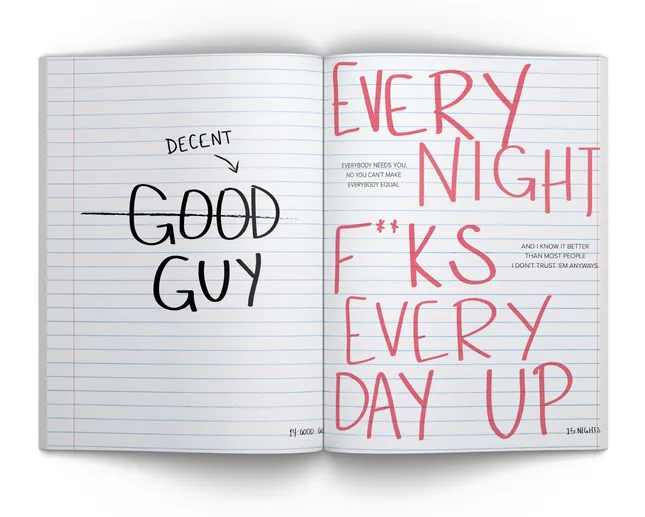 DECENT
GOOD
GUY
14: GOOD GU
EVERY
NIGHT
EVERYBODY NEEDS YOU,
NO YOU CAN'T MAKE
EVERYBODY EQUAL
F**KS
AND I KNOW IT BETTER
THAN MOST PEOPLE
I DON'T TRUST 'EM ANYWAYS
EVERY
DAY UP
15: NIGHTS